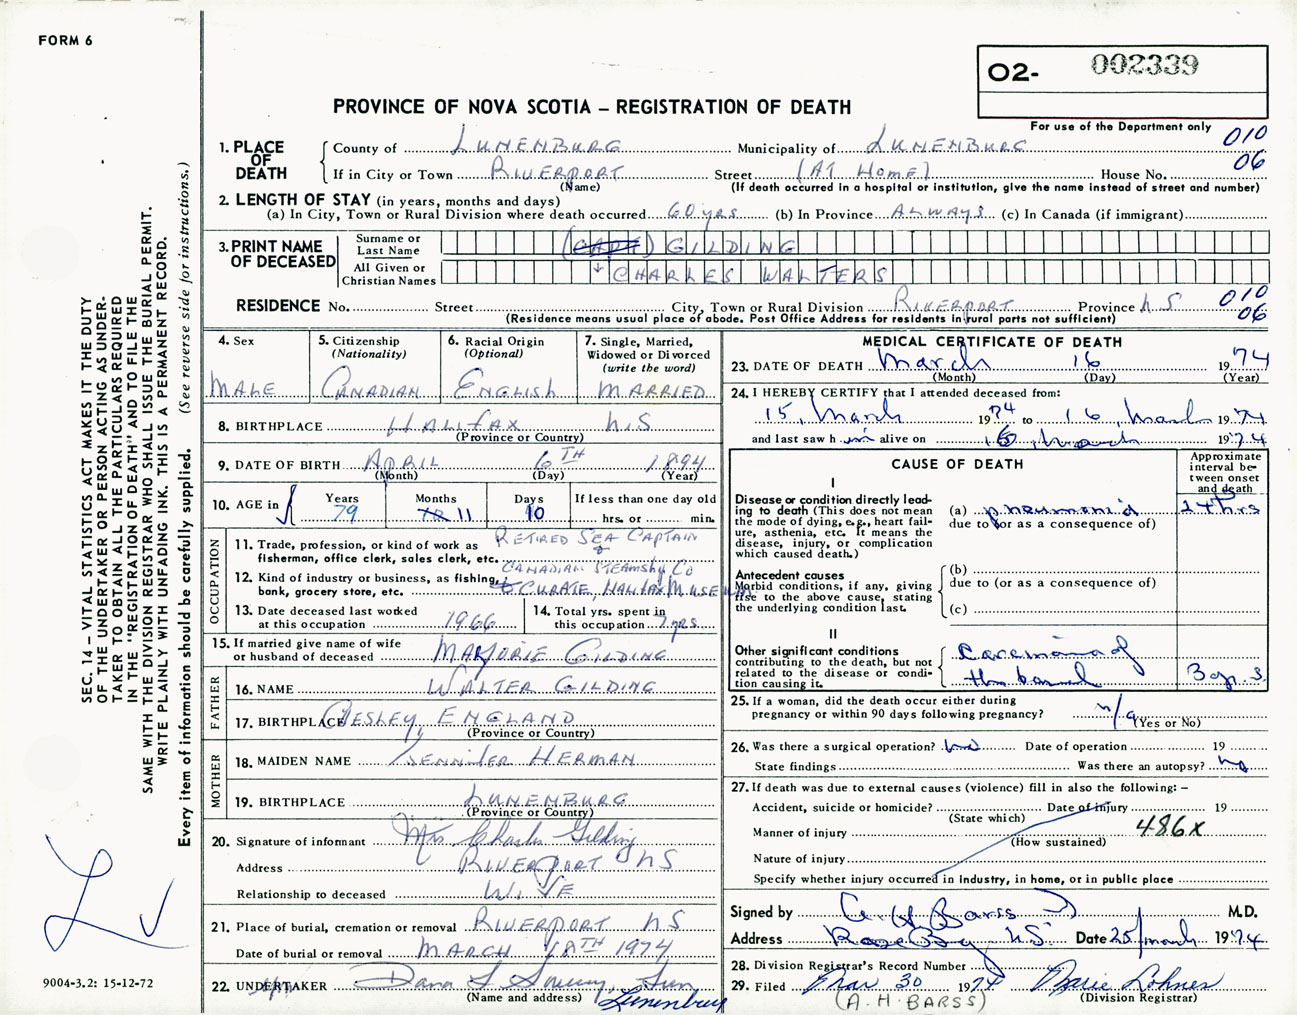 FORM 6
O2- 002339
PROVINCE OF NOVA SCOTIA – REGISTRATION OF DEATH
For use of the Department only
010
06
1. PLACE OF DEATH
County of LUNENBURG Municipality of LUNENBURG
If in City or Town RIVERPORT Street (AT HOME) House No.
(Name) (If death occurred in a hospital or institution, give the name instead of street and number)
2. LENGTH OF STAY (in years, months and days)
(a) In City, Town or Rural Division where death occurred 60 yrs (b) In Province ALWAYS (c) In Canada (if immigrant)
3. PRINT NAME OF DECEASED
Surname or Last Name (CAPT) GILDING
All Given or Christian Names CHARLES WALTERS
RESIDENCE No. Street City, Town or Rural Division RIVERPORT Province N S
010
06
(Residence means usual place of abode. Post Office Address for residents in rural parts not sufficient)
4. Sex
MALE
5. Citizenship (Nationality)
CANADIAN
6. Racial Origin (Optional)
ENGLISH
7. Single, Married, Widowed or Divorced (write the word)
MARRIED
8. BIRTHPLACE HALIFAX N.S
(Province or Country)
9. DATE OF BIRTH APRIL 6TH 1894
(Month) (Day) (Year)
10. AGE in Years Months Days If less than one day old
79 11 10 hrs. or min.
OCCUPATION
11. Trade, profession, or kind of work as fisherman, office clerk, sales clerk, etc. RETIRED SEA CAPTAIN
12. Kind of industry or business, as fishing, bank, grocery store, etc. CANADIAN STEAMSHIP CO
& CURATE, HALIFAX MUSEUM
13. Date deceased last worked at this occupation 1966
14. Total yrs. spent in this occupation 7 yrs
15. If married give name of wife or husband of deceased MARJORIE GILDING
FATHER
16. NAME WALTER GILDING
17. BIRTHPLACE ENGLAND
(Province or Country)
MOTHER
18. MAIDEN NAME JENNIFER HERMAN
19. BIRTHPLACE LUNENBURG
(Province or Country)
20. Signature of informant Mrs Charles Gilding
Address RIVERPORT NS
Relationship to deceased WIFE
21. Place of burial, cremation or removal RIVERPORT NS
Date of burial or removal MARCH 18TH 1974
22. UNDERTAKER Dana L Sweeny, Lunenburg
(Name and address)
MEDICAL CERTIFICATE OF DEATH
23. DATE OF DEATH March 16 1974
(Month) (Day) (Year)
24. I HEREBY CERTIFY that I attended deceased from:
15, March 1974 to 16, March 1974
and last saw him alive on 16, March 1974
CAUSE OF DEATH
Approximate interval between onset and death
I
Disease or condition directly leading to death (This does not mean the mode of dying, e.g., heart failure, asthenia, etc. It means the disease, injury, or complication which caused death.)
(a) pneumonia 24 hrs
due to (or as a consequence of)
Antecedent causes
Morbid conditions, if any, giving rise to the above cause, stating the underlying condition last.
(b)
due to (or as a consequence of)
(c)
II
Other significant conditions contributing to the death, but not related to the disease or condition causing it.
Carcinoma of
the bowel
25. If a woman, did the death occur either during pregnancy or within 90 days following pregnancy? n/a
(Yes or No)
26. Was there a surgical operation? no Date of operation 19
State findings Was there an autopsy? no
27. If death was due to external causes (violence) fill in also the following: –
Accident, suicide or homicide? Date of injury 19
(State which)
Manner of injury 486X
(How sustained)
Nature of injury
Specify whether injury occurred in industry, in home, or in public place
Signed by A H Barss M.D.
Address Rose Bay, N.S. Date 25/March 1974
28. Division Registrar's Record Number
29. Filed Mar 30 1974 Marie Lohnes
(A.H. BARSS) (Division Registrar)
SEC. 14 – VITAL STATISTICS ACT MAKES IT THE DUTY
OF THE UNDERTAKER OR PERSON ACTING AS UNDER-
TAKER TO OBTAIN ALL THE PARTICULARS REQUIRED
IN THE "REGISTRATION OF DEATH" AND TO FILE THE
SAME WITH THE DIVISION REGISTRAR WHO SHALL ISSUE THE BURIAL PERMIT.
WRITE PLAINLY WITH UNFADING INK. THIS IS A PERMANENT RECORD.
Every item of information should be carefully supplied. (See reverse side for instructions.)
9004-3.2: 15-12-72